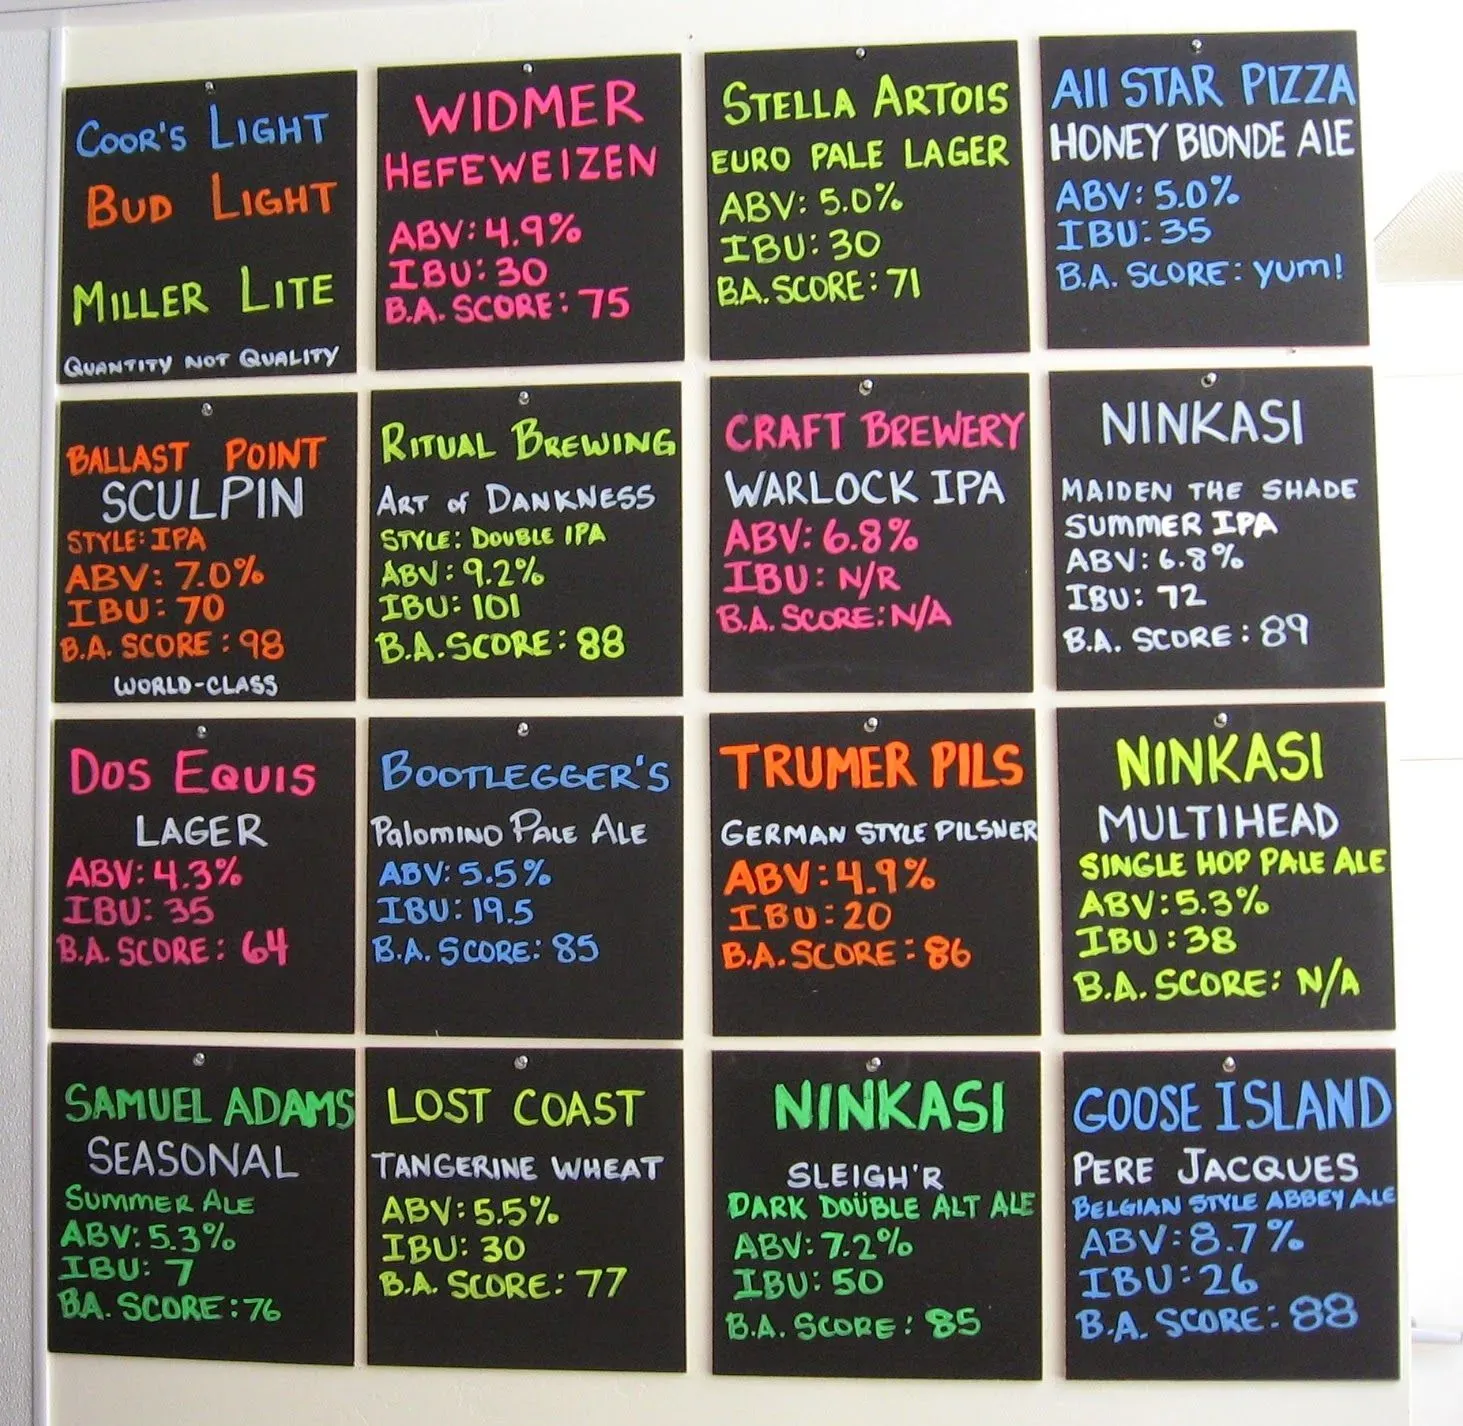 COOR'S LIGHT
BUD LIGHT
MILLER LITE
QUANTITY NOT QUALITY
WIDMER
HEFEWEIZEN
ABV: 4.9%
IBU: 30
B.A. SCORE: 75
STELLA ARTOIS
EURO PALE LAGER
ABV: 5.0%
IBU: 30
B.A. SCORE: 71
All STAR PIZZA
HONEY BlONDE ALE
ABV: 5.0%
IBU: 35
B.A. SCORE: yum!
BALLAST POINT
SCULPIN
STYLE: IPA
ABV: 7.0%
IBU: 70
B.A. SCORE: 98
WORLD-CLASS
RITUAL BREWING
ART of DANKNESS
STYLE: DOUBLE IPA
ABV: 9.2%
IBU: 101
B.A. SCORE: 88
CRAFT BREWERY
WARLOCK IPA
ABV: 6.8%
IBU: N/R
B.A. SCORE: N/A
NINKASI
MAIDEN THE SHADE
SUMMER IPA
ABV: 6.8%
IBU: 72
B.A. SCORE: 89
DOS EQUIS
LAGER
ABV: 4.3%
IBU: 35
B.A. SCORE: 64
BOOTLEGGER'S
Palomino Pale Ale
ABV: 5.5%
IBU: 19.5
B.A. SCORE: 85
TRUMER PILS
GERMAN STYLE PILSNER
ABV: 4.9%
IBU: 20
B.A. SCORE: 86
NINKASI
MULTIHEAD
SINGLE HOP PALE ALE
ABV: 5.3%
IBU: 38
B.A. SCORE: N/A
SAMUEL ADAMS
SEASONAL
SUMMER ALE
ABV: 5.3%
IBU: 7
B.A. SCORE: 76
LOST COAST
TANGERINE WHEAT
ABV: 5.5%
IBU: 30
B.A. SCORE: 77
NINKASI
SLEIGH'R
DARK DOÜBLE ALT ALE
ABV: 7.2%
IBU: 50
B.A. SCORE: 85
GOOSE ISLAND
PERE JACQUES
BELGIAN STYLE ABBEY ALE
ABV: 8.7%
IBU: 26
B.A. SCORE: 88